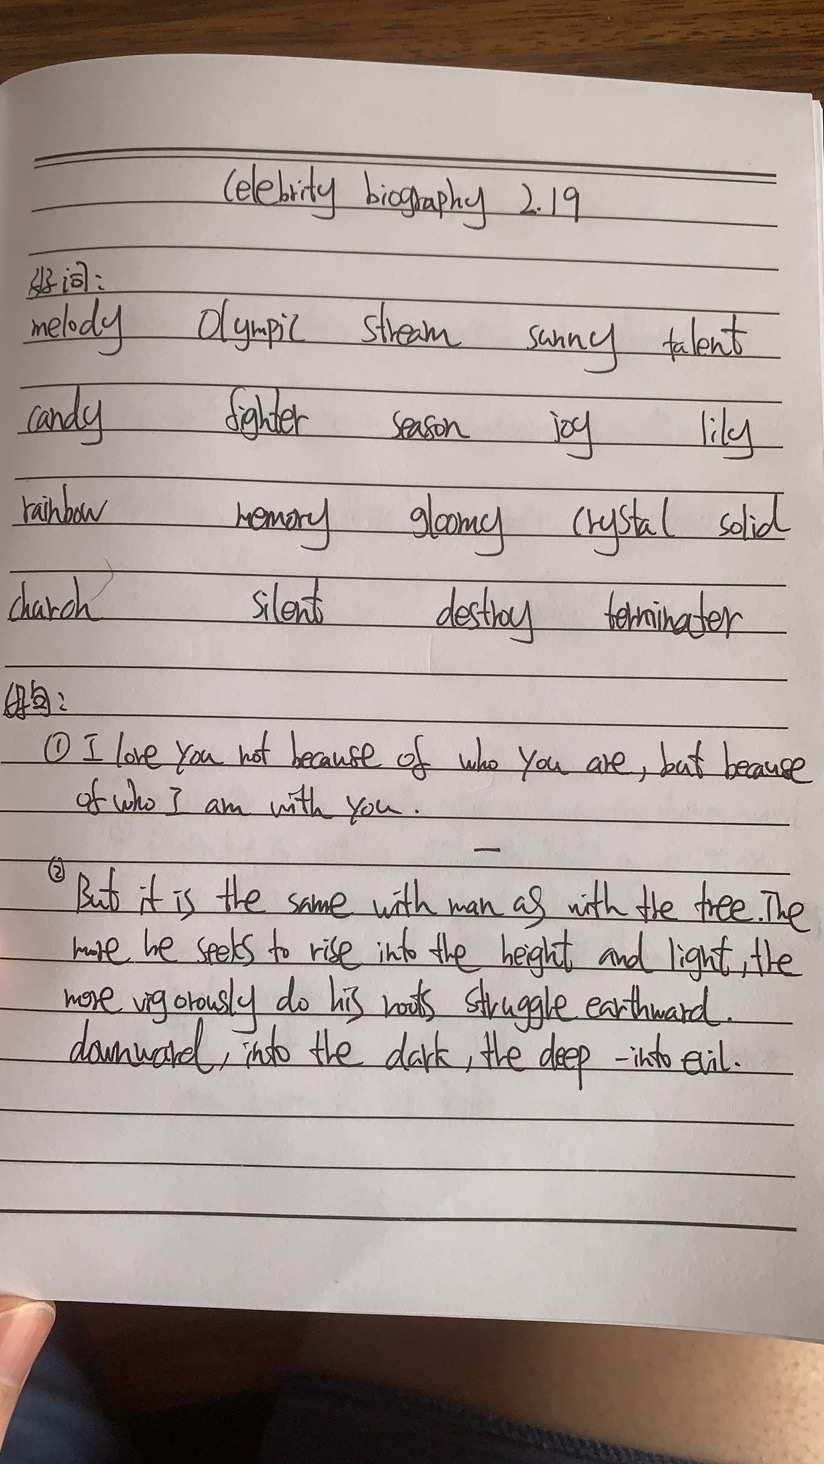 Celebrity biography 2.19
好词:
melody Olympic stream sunny talent
candy fighter season joy lily
rainbow memory gloomy crystal solid
charch silent destroy terminater
好句:
① I love you not because of who you are, but because
of who I am with you.
② But it is the same with man as with the tree. The
more he seeks to rise into the height and light, the
more vigorously do his roots struggle earthward.
downward, into the dark, the deep - into evil.